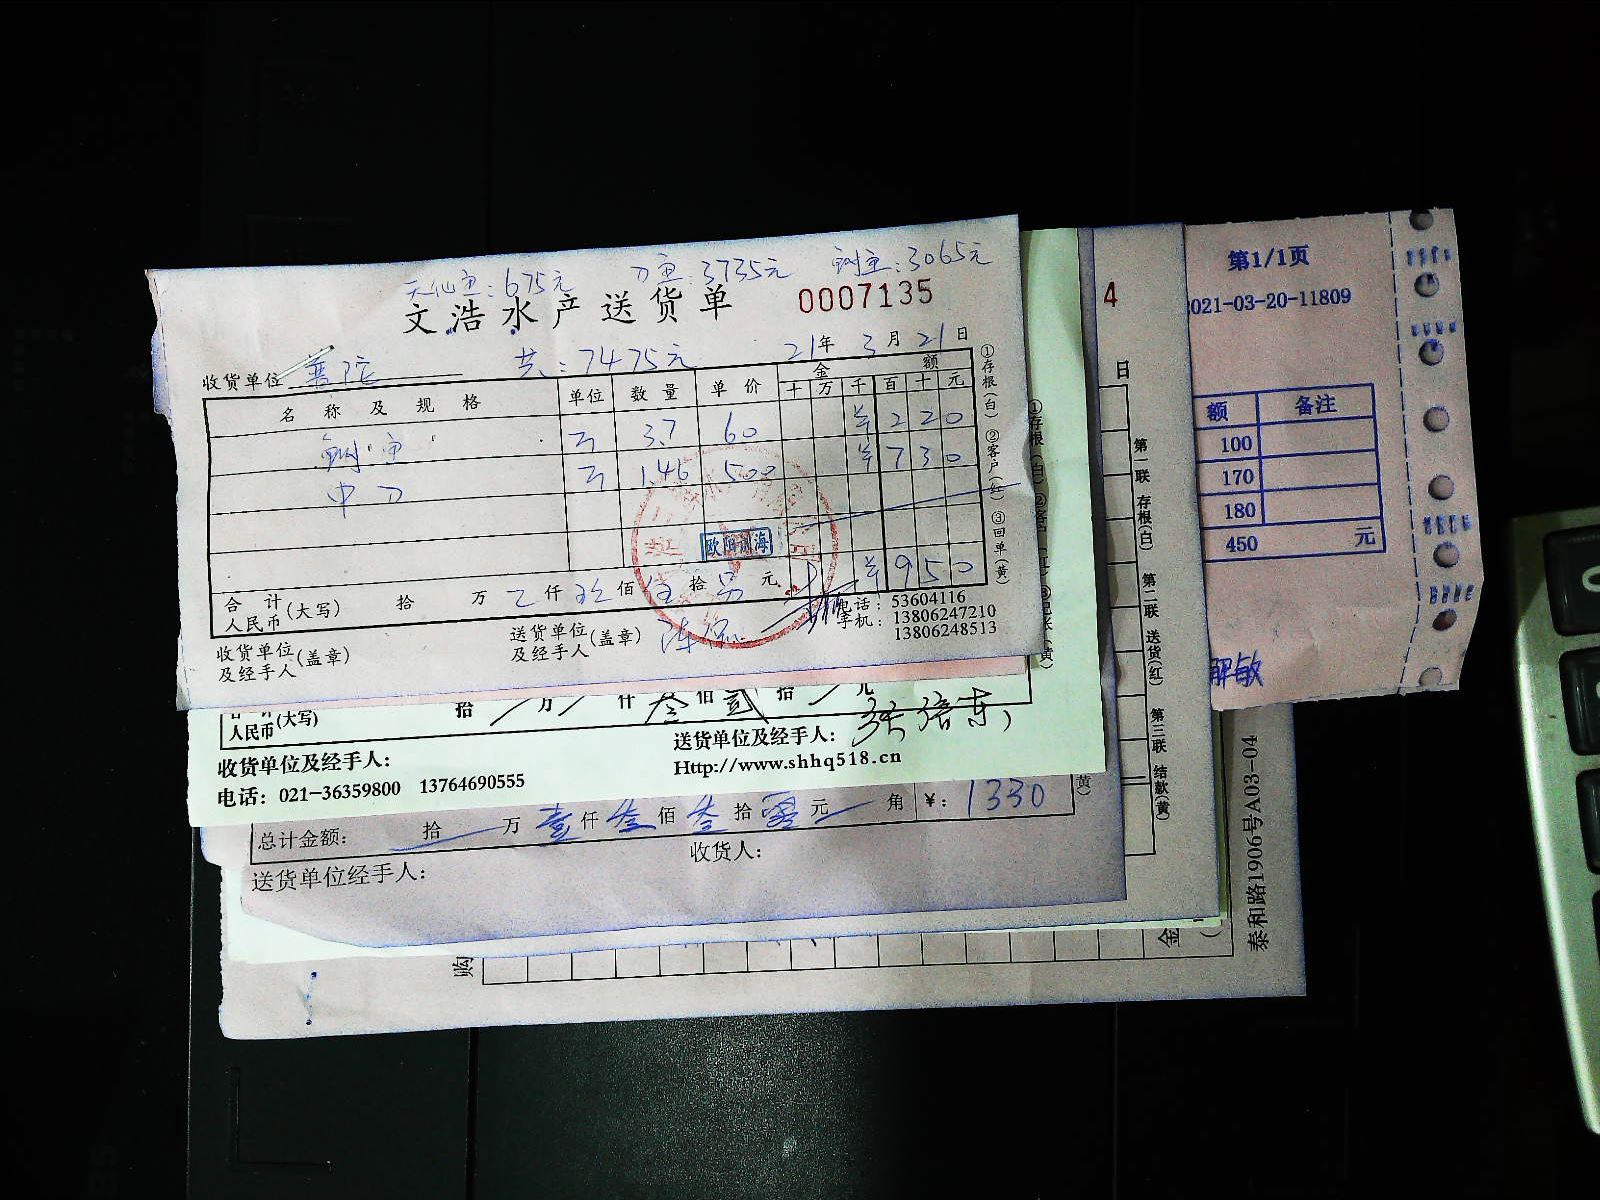 天仙鱼:675元 刀鱼:3735元 鲥鱼:3065元
文浩水产送货单 0007135
共:7475元
21年 3月 21日
收货单位
名称及规格 单位 数量 单价 金额
十 万 千 百 十 元
鲥鱼 3.7 60 ¥220
中刀 1.46 500 ¥730
欧阳
¥950
合计
人民币(大写) 拾 万 仟 玖佰 伍拾 元
电话:53604116
手机:13806247210
13806248513
收货单位
及经手人(盖章)
送货单位
及经手人(盖章)
①存根(白) ②客户(红) ③回单(黄)
人民币(大写) 拾 万 仟 叁佰 贰拾 元
收货单位及经手人:
送货单位及经手人:
电话: 021-36359800 13764690555
Http://www.shhq518.cn
总计金额: 拾 万 壹仟 叁佰 叁拾 零元 角 ¥: 1330
送货单位经手人:
收货人:
(黄)
4
日
第一联 存根(白)
第二联 送货(红)
第三联 结款(黄)
第1/1页
021-03-20-11809
额 备注
100
170
180
450 元
解敏
购
金
泰和路1906号A03-04